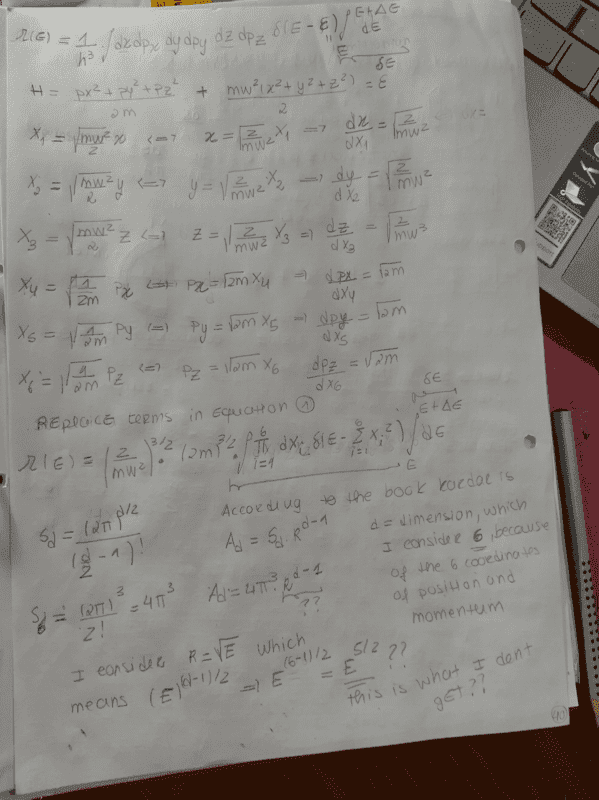 Ω(E) = 1/h³ ∫ dx dpx dy dpy dz dpz δ(E-ε) ∫_E^{E+ΔE} dE
δE
H = (px² + py² + pz²)/2m + mw²(x² + y² + z²)/2 = ε
X₁ = √(mw²/2) x <=> x = √(2/mw²) X₁ => dx/dX₁ = √(2/mw²)
X₂ = √(mw²/2) y <=> y = √(2/mw²) X₂ => dy/dX₂ = √(2/mw²)
X₃ = √(mw²/2) z <=> z = √(2/mw²) X₃ => dz/dX₃ = √(2/mw²)
X₄ = √(1/2m) px <=> px = √2m X₄ => dpx/dX₄ = √2m
X₅ = √(1/2m) py <=> py = √2m X₅ => dpy/dX₅ = √2m
X₆ = √(1/2m) pz <=> pz = √2m X₆ dpz/dX₆ = √2m
REPLACE terms in Equation ①
δE
Ω(E) = (2/mw²)^{3/2} · (2m)^{3/2} · ∫ ∏_{i=1}^{6} dXi δ(E - Σ_{i=1}^{6} Xi²) ∫_E^{E+ΔE} dE
According to the book kardar is
Sd = (2π)^{d/2} / (d/2 - 1)!
Ad = Sd · R^{d-1}
d = dimension, which
I consider 6, because
of the 6 coordinates
of position and
momentum
S6 = (2π)³/2! = 4π³
Ad = 4π³ · R^{d-1}
??
I consider R = √E which
means (E)^{(d-1)/2} => E^{(6-1)/2} = E^{5/2} ??
this is what I dont
get??